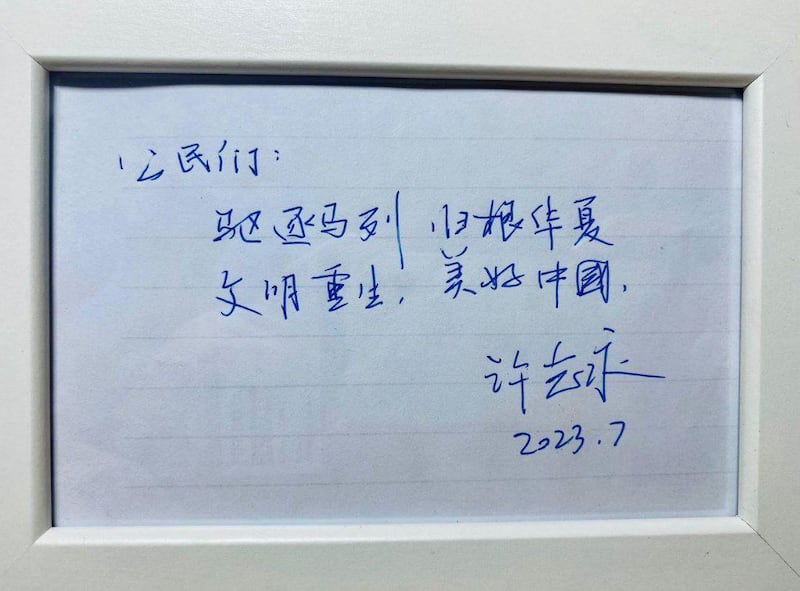 公民们:
驱逐马列 归根华夏
文明重生,美好中國,
许志永
2023.7